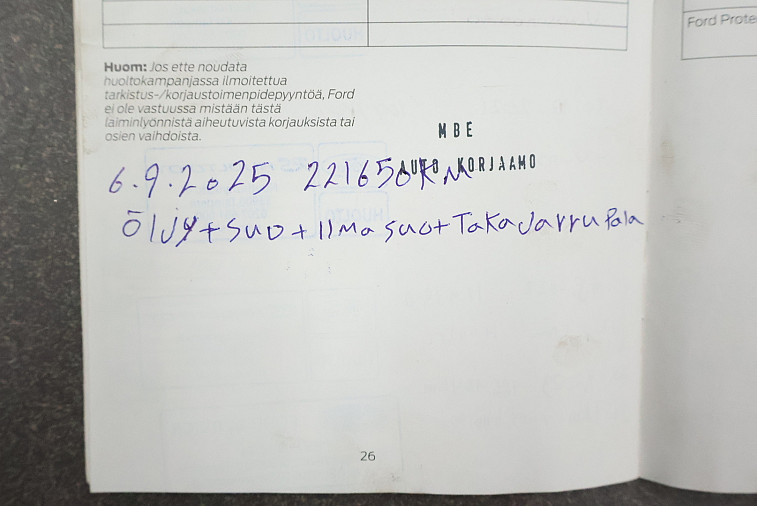 Ford Prote
Huom: Jos ette noudata
huoltokampanjassa ilmoitettua
tarkistus-/korjaustoimenpidepyyntöä, Ford
ei ole vastuussa mistään tästä
laiminlyönnistä aiheutuvista korjauksista tai
osien vaihdoista.
MBE
AUTO KORJAAMO
6.9.2025 221650KM
Öljy+suo+Ilmasuo+TakaJarruPala
26